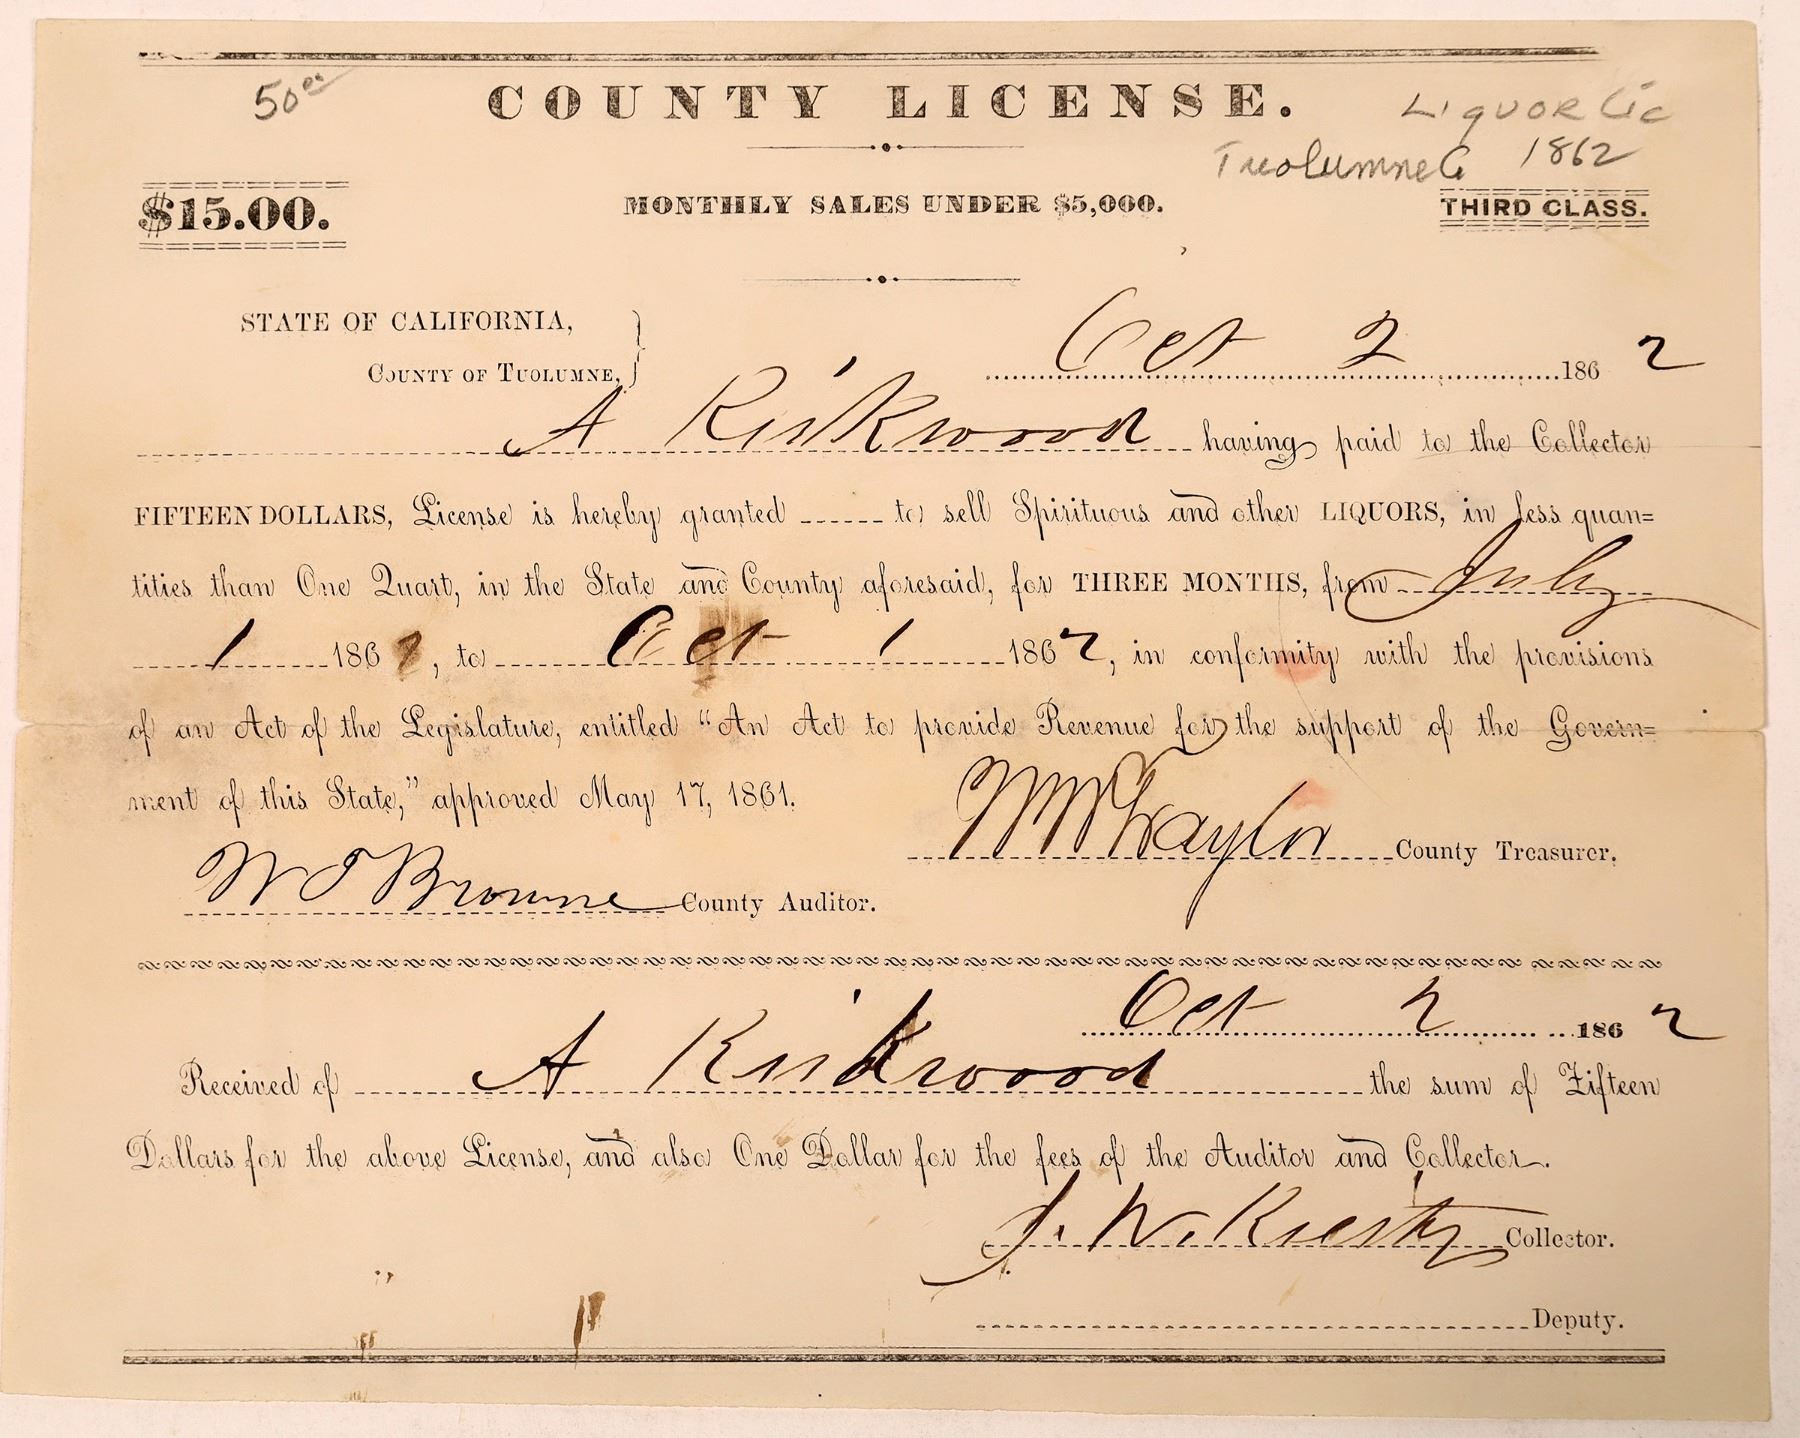 50 00
COUNTY LICENSE.
Liquor Lic
Tuolumne Co 1862
$15.00.
MONTHLY SALES UNDER $5,000.
THIRD CLASS.
STATE OF CALIFORNIA,
COUNTY OF TUOLUMNE,
Oct 2 1862
A Kirkwood having paid to the Collector
FIFTEEN DOLLARS, License is hereby granted to sell Spirituous and other LIQUORS, in less quan=
tities than One Quart, in the State and County aforesaid, for THREE MONTHS, from July
1 1862, to Oct 1 1862, in conformity with the provisions
of an Act of the Legislature, entitled "An Act to provide Revenue for the support of the Govern=
ment of this State," approved May 17, 1861.
Taylor County Treasurer.
Browne County Auditor.
Oct 2 1862
Received of A Kirkwood the sum of Fifteen
Dollars for the above License, and also One Dollar for the fees of the Auditor and Collector.
J. W. Collector.
Deputy.